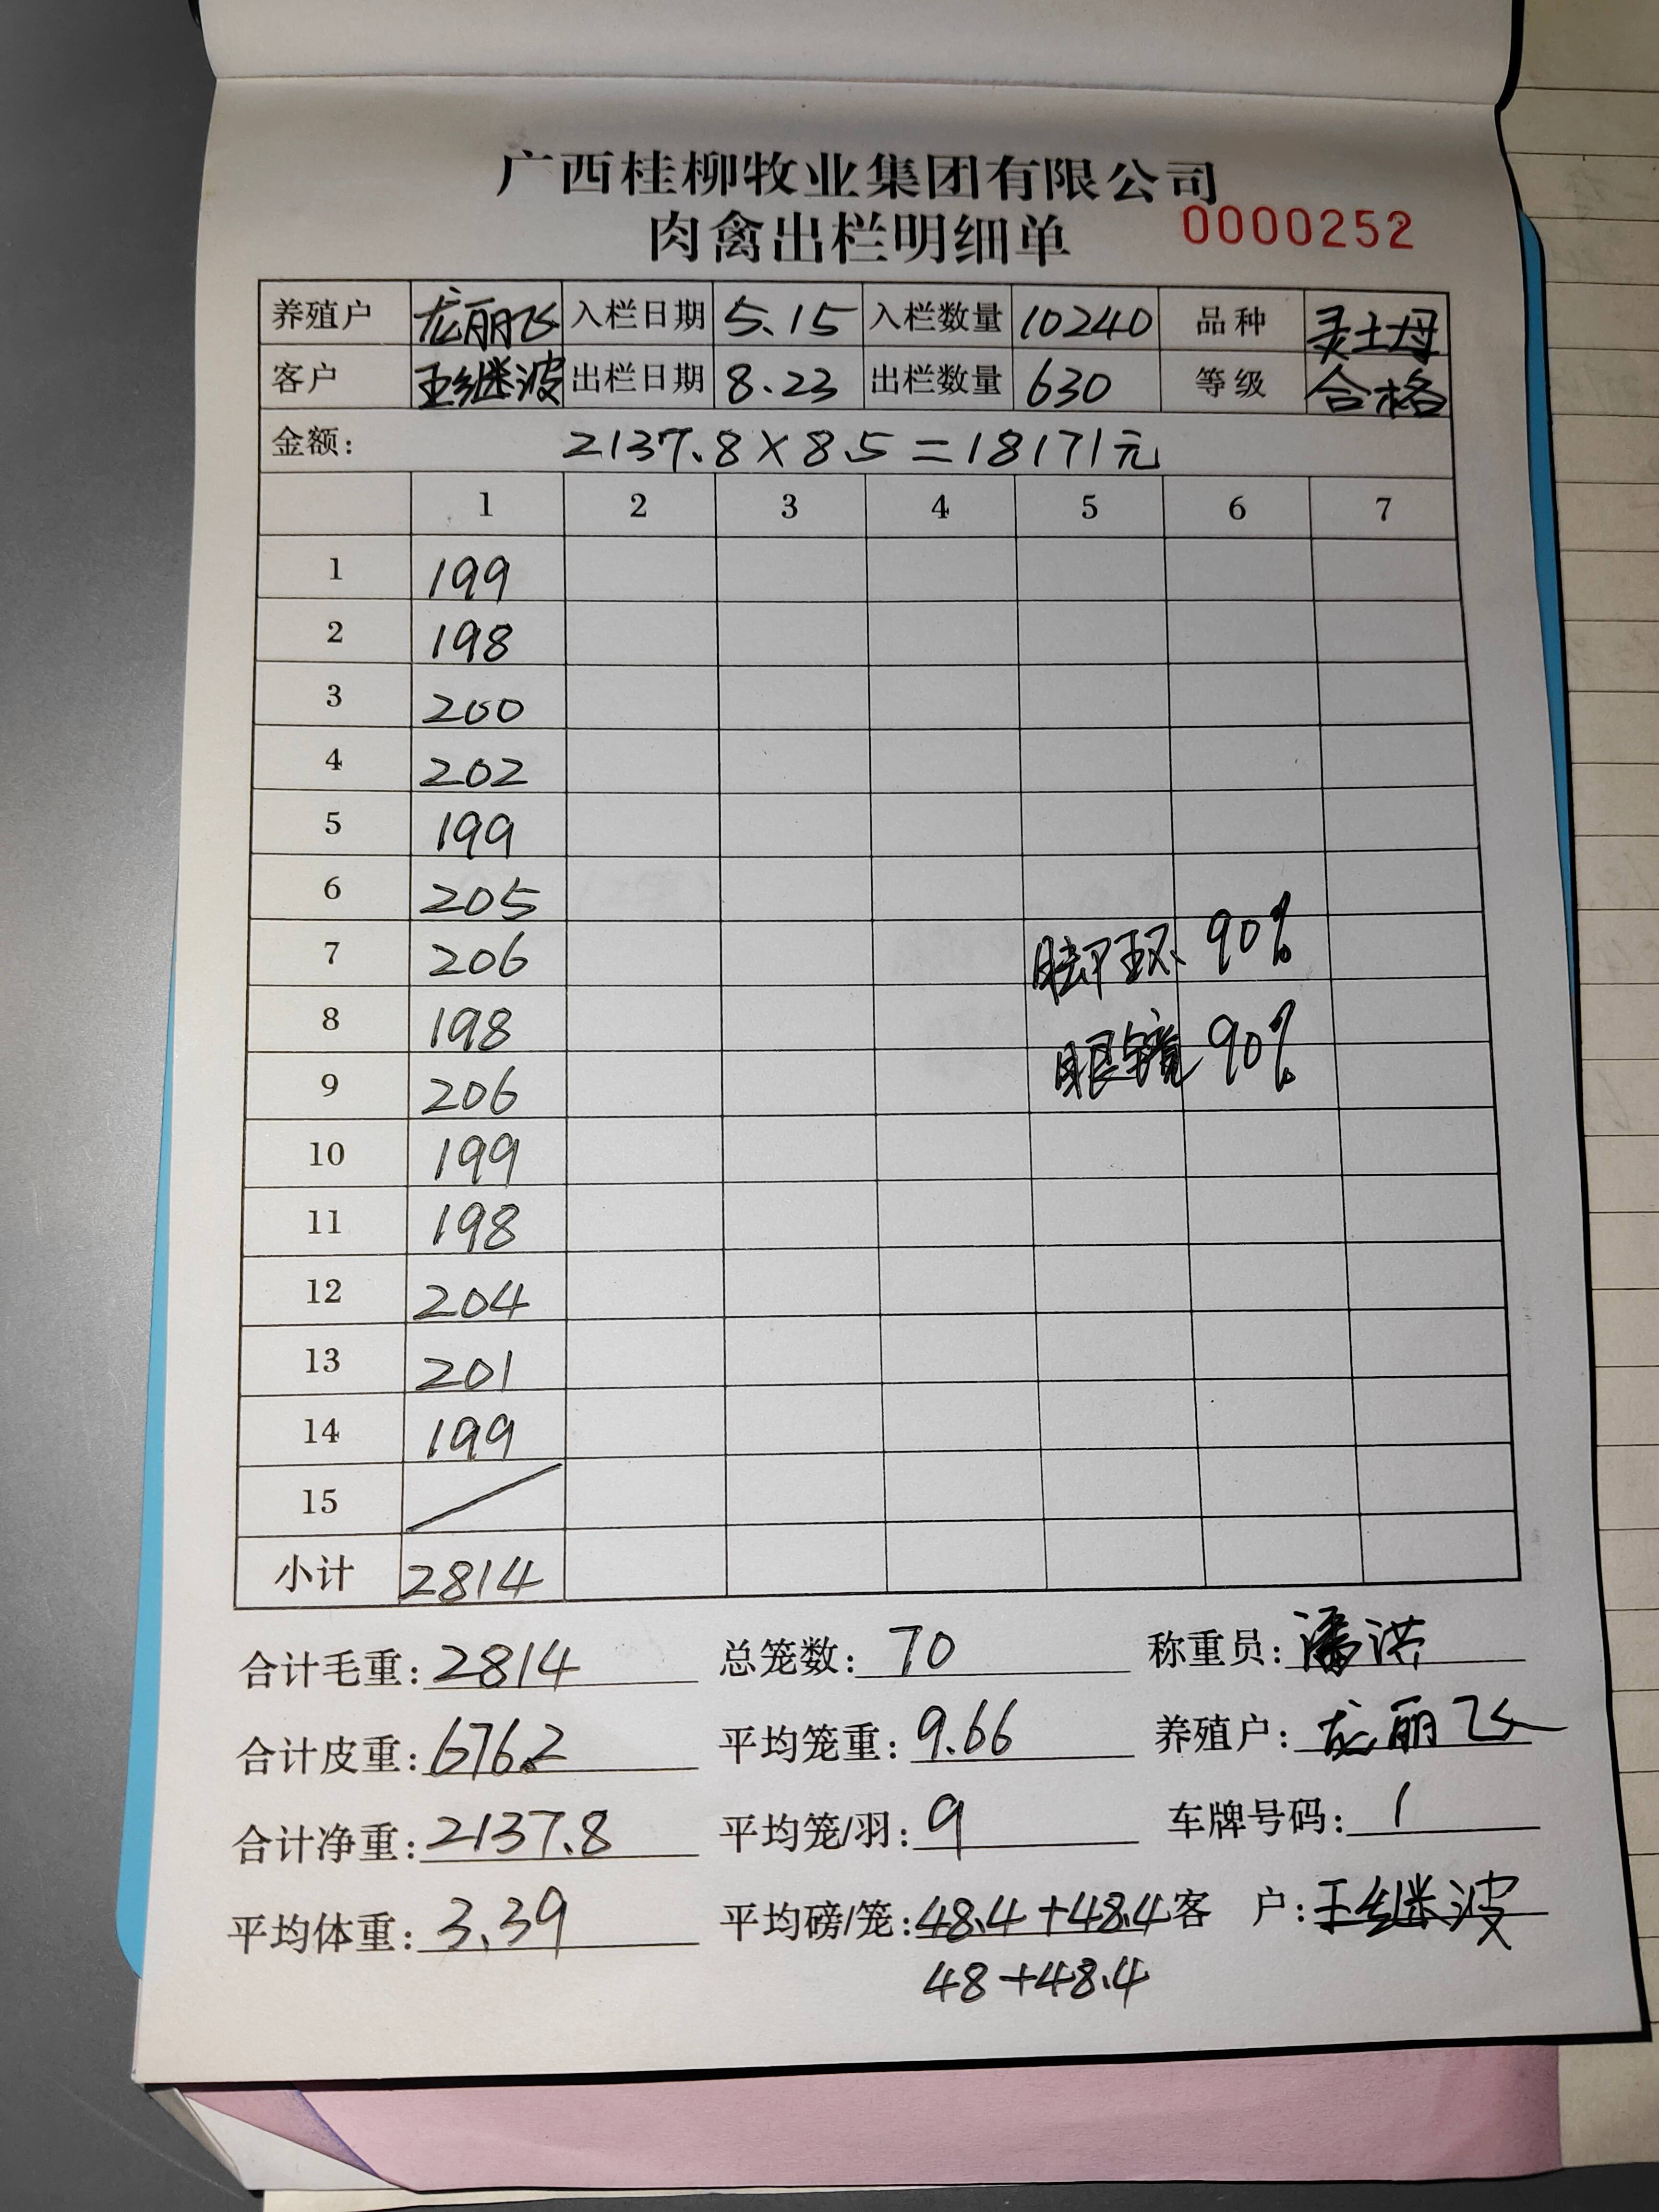 广西桂柳牧业集团有限公司
肉禽出栏明细单 0000252
养殖户 龙丽飞 入栏日期 5.15 入栏数量 10240 品种 灵土母
客户 王继波 出栏日期 8.23 出栏数量 630 等级 合格
金额: 2137.8×8.5=18171元
1 2 3 4 5 6 7
1 199
2 198
3 200
4 202
5 199
6 205
7 206 脚环 90%
8 198
9 206 眼镜 90%
10 199
11 198
12 204
13 201
14 199
15 /
小计 2814
合计毛重: 2814 总笼数: 70 称重员: 潘洪
合计皮重: 676.2 平均笼重: 9.66 养殖户: 龙丽飞
合计净重: 2137.8 平均笼/羽: 9 车牌号码: 1
平均体重: 3.39 平均磅/笼: 48.4+48.4 客 户: 王继波
48+48.4